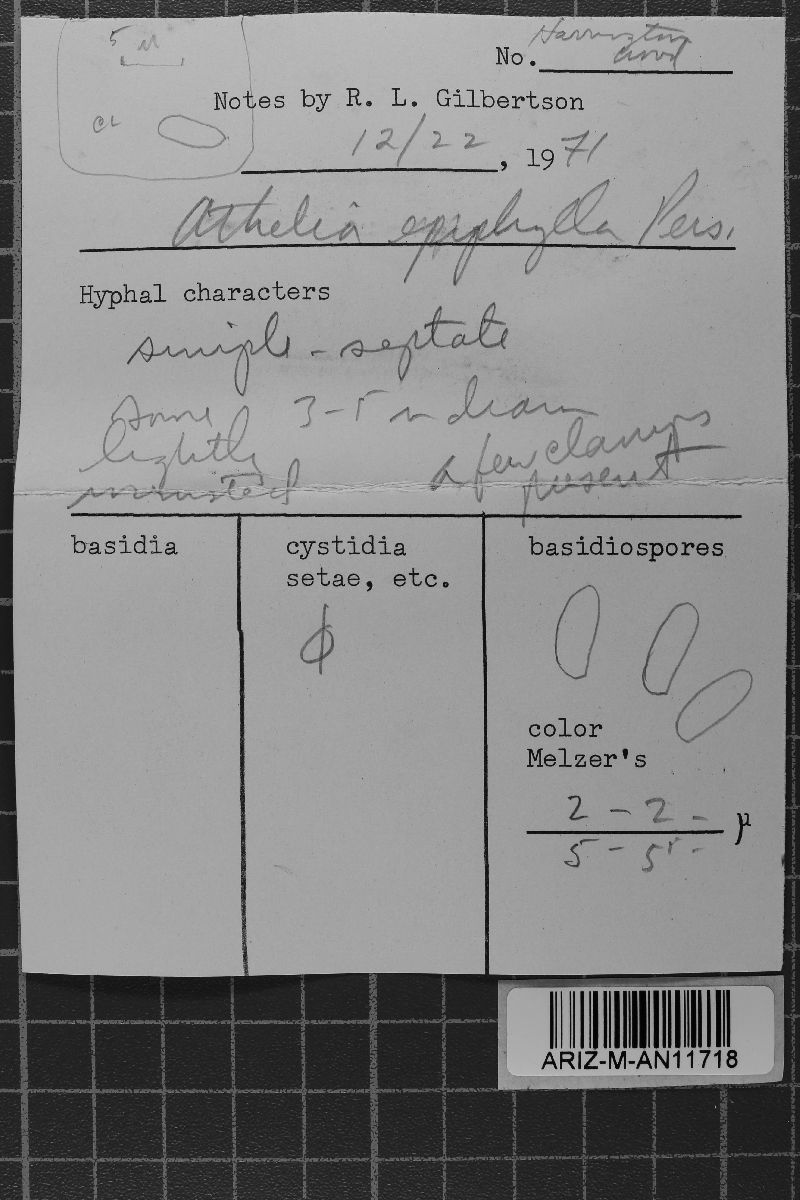 5 μ
No. Harrington
Notes by R. L. Gilbertson
12/22, 1971
Athelia epiphylla Pers.
Hyphal characters
simple-septate
some 3-5 μ diam
lightly a few clamps
incrusted present
basidia
cystidia
setae, etc.
basidiospores
color
Melzer's
2 - 2 - μ
5 - 5
ARIZ-M-AN11718